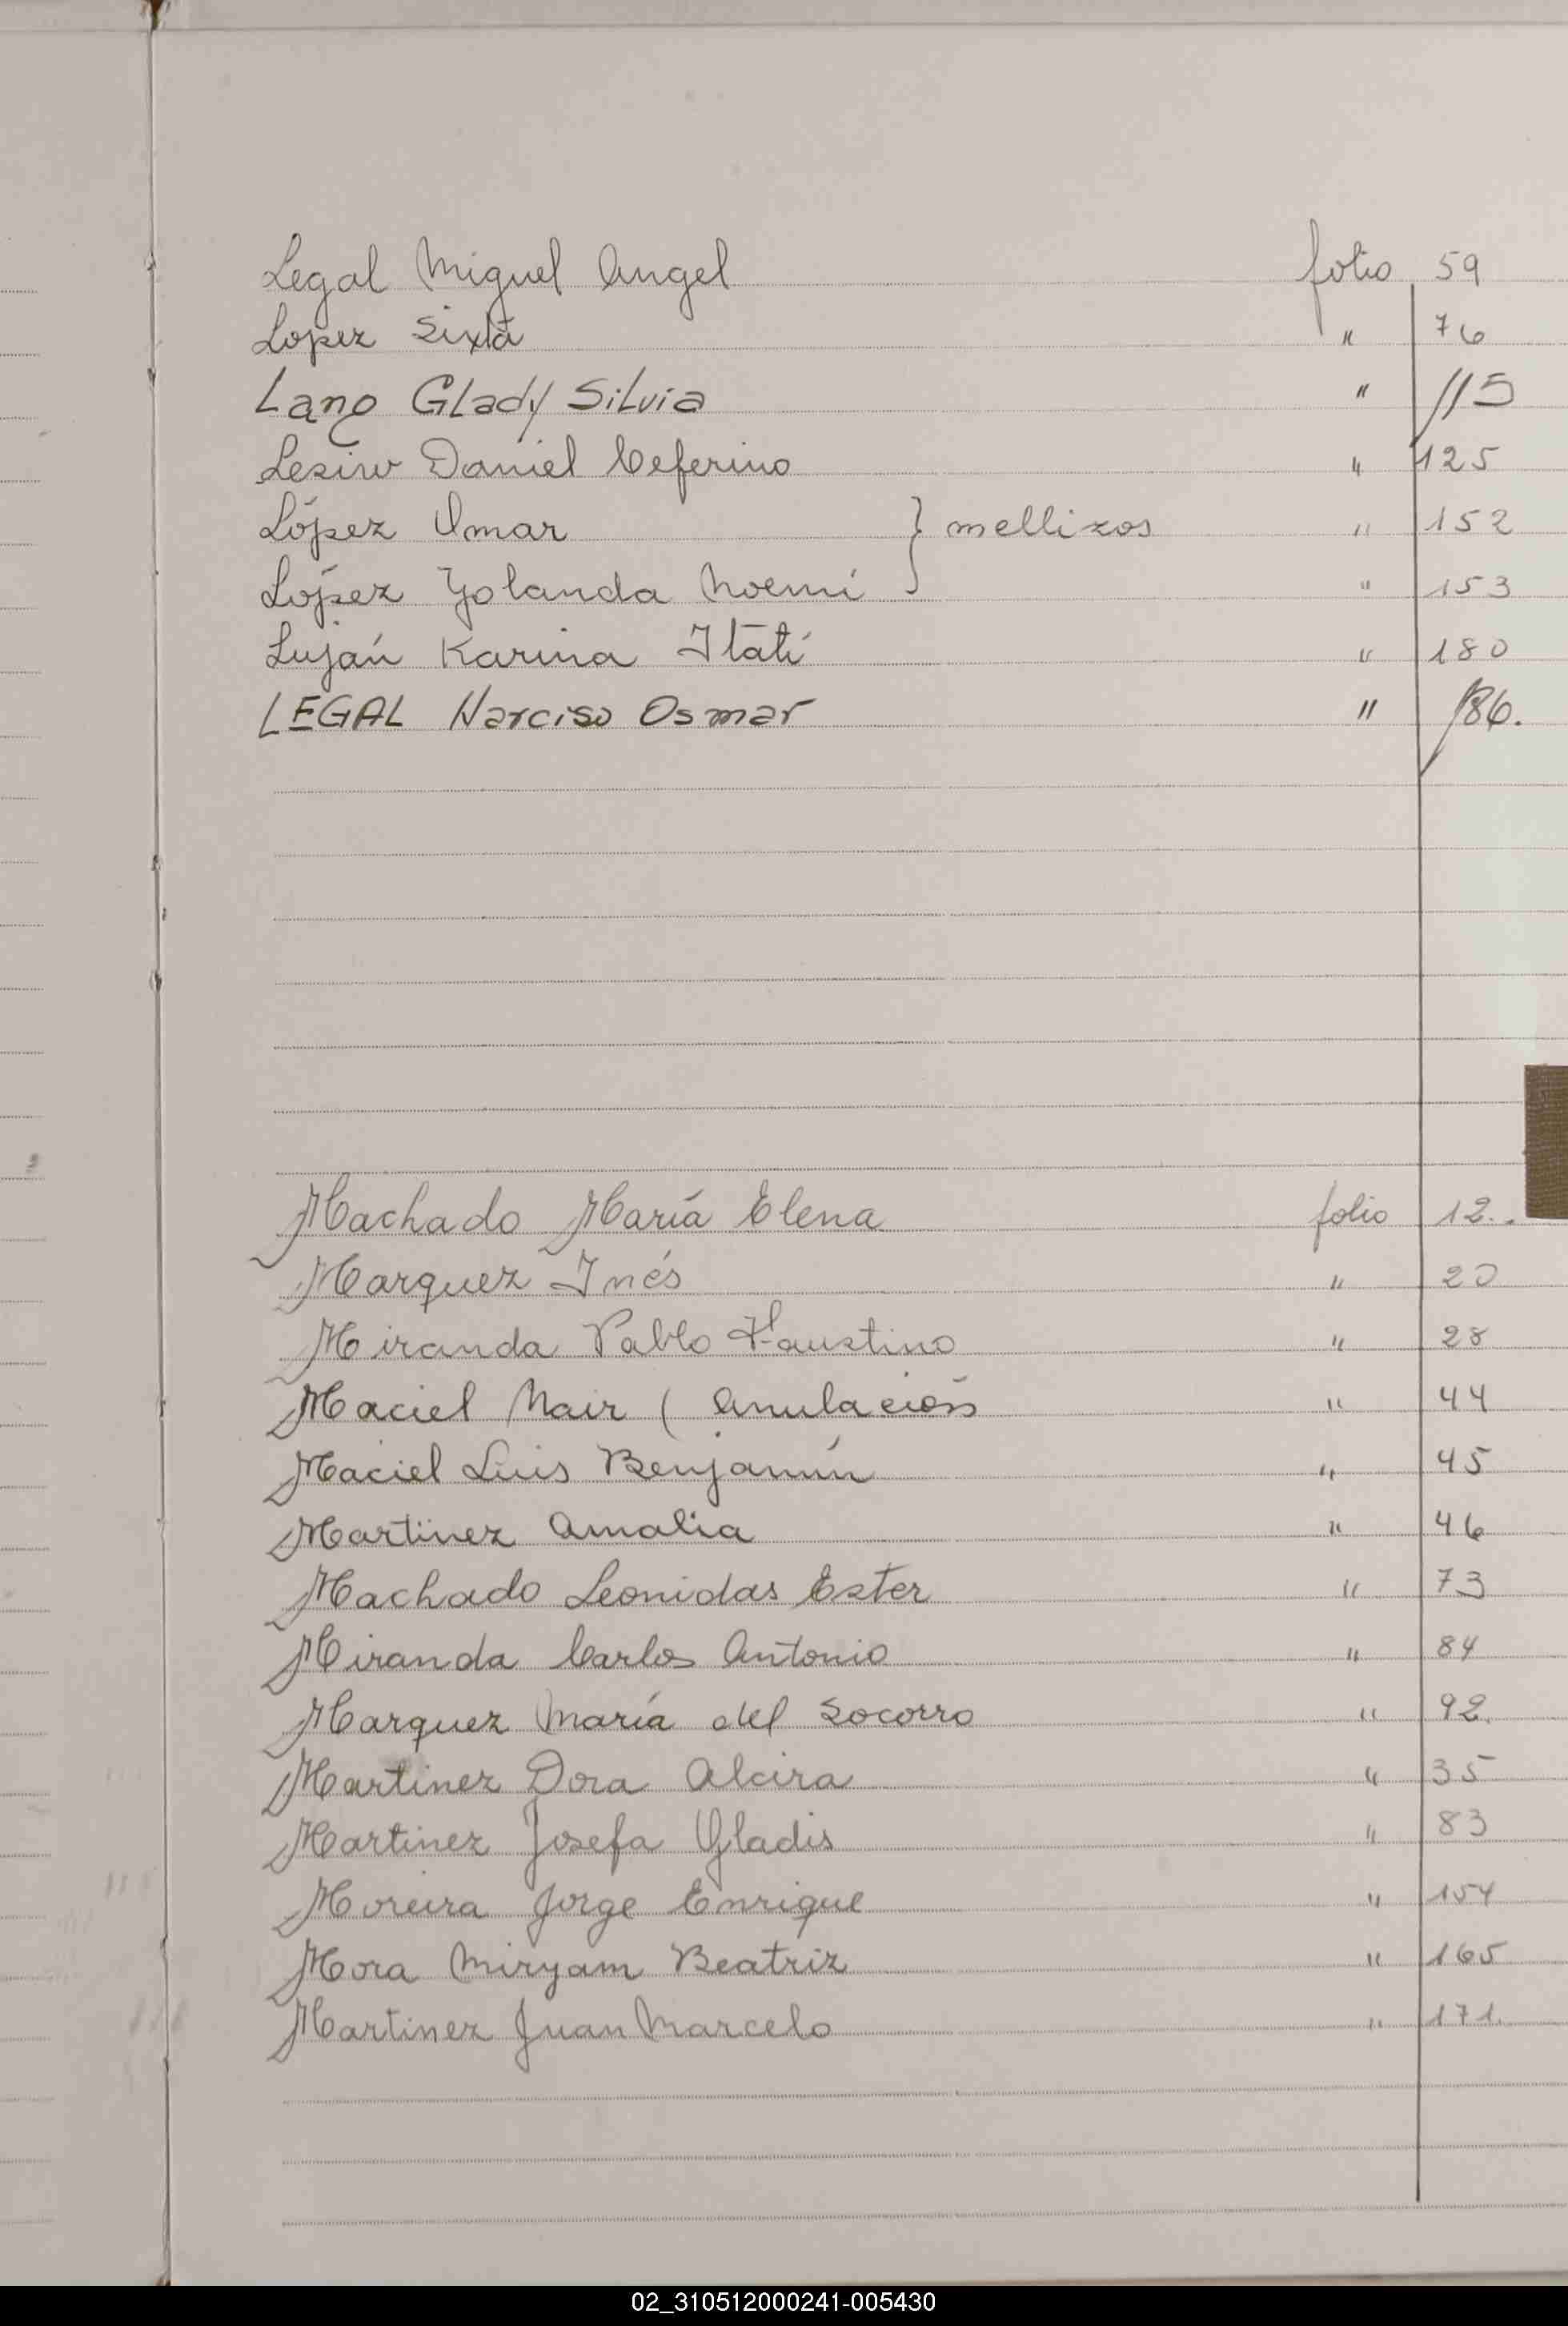 Legal Miguel Angel folio 59
Lopez Sixta " 76
Lano Glady Silvia " 115
Lesiw Daniel Ceferino " 125
López Omar } mellizos " 152
López Yolanda Noemí " 153
Luján Karina Itatí " 180
LEGAL Narciso Osmar " 186.
Machado María Elena folio 12.
Marquez Inés " 20
Miranda Pablo Faustino " 28
Maciel Nair ( anulación " 44
Maciel Luis Benjamín " 45
Martinez Amalia " 46
Machado Leonidas Ester " 73
Miranda Carlos Antonio " 84
Marquez María del Socorro " 92.
Martinez Dora Alcira " 35
Martinez Josefa Gladis " 83
Moreira Jorge Enrique " 154
Mora Miryam Beatriz " 165
Martinez Juan Marcelo " 171.
02_310512000241-005430